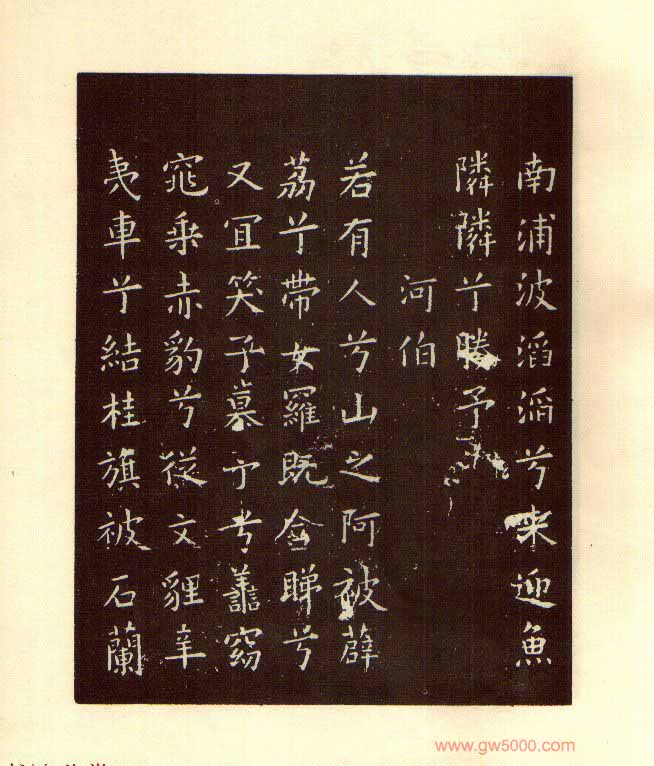 南浦波滔滔兮来迎魚
隣隣兮勝予
河伯
若有人兮山之阿被薜
荔兮帶女羅既含睇兮
又冝笑子慕予兮譱窈
窕乘赤豹兮從文貍辛
夷車兮結桂旗被石蘭
www.gw5000.com